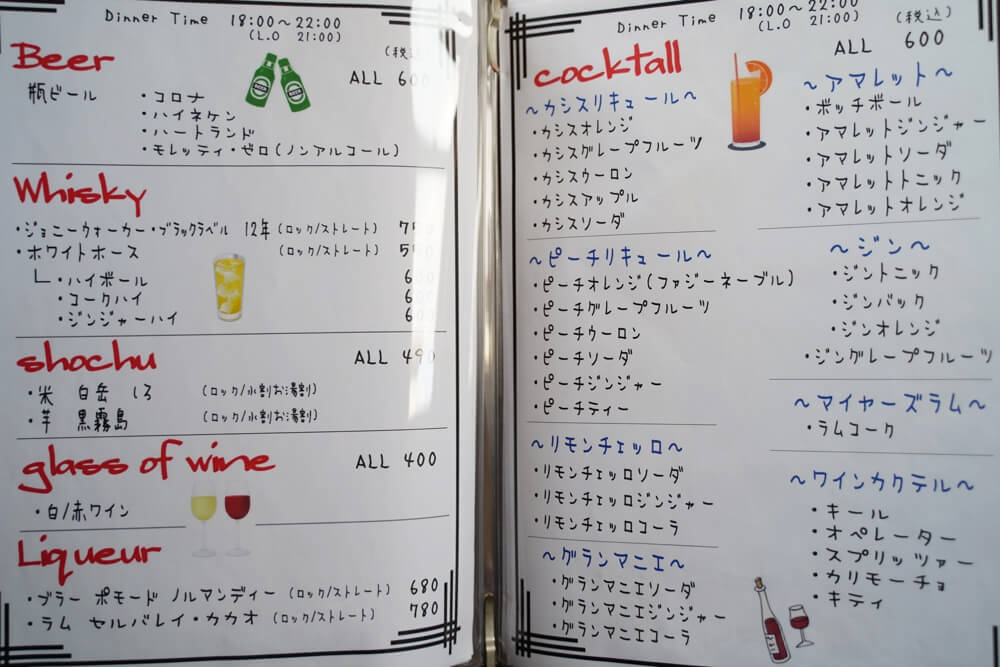 Dinner Time 18:00～22:00
(L.O 21:00)
Beer
(税込)
ALL 600
瓶ビール
・コロナ
・ハイネケン
・ハートランド
・モレッティ・ゼロ(ノンアルコール)
Whisky
・ジョニーウォーカー・ブラックラベル 12年(ロック/ストレート)
・ホワイトホース (ロック/ストレート)
・ハイボール
・コークハイ
・ジンジャーハイ
shochu
ALL 490
・米 白岳 しろ (ロック/水割お湯割)
・芋 黒霧島 (ロック/水割お湯割)
glass of wine
ALL 400
・白/赤ワイン
Liqueur
・ブラー ポモード ノルマンディー (ロック/ストレート) 680
・ラム セルバレイ・カカオ (ロック/ストレート) 780
Dinner Time 18:00～22:00
(L.O 21:00)
(税込)
cocktall
ALL 600
～カシスリキュール～
・カシスオレンジ
・カシスグレープフルーツ
・カシスウーロン
・カシスアップル
・カシスソーダ
～ピーチリキュール～
・ピーチオレンジ(ファジーネーブル)
・ピーチグレープフルーツ
・ピーチウーロン
・ピーチソーダ
・ピーチジンジャー
・ピーチティー
～リモンチェッロ～
・リモンチェッロソーダ
・リモンチェッロジンジャー
・リモンチェッロコーラ
～グランマニエ～
・グランマニエソーダ
・グランマニエジンジャー
・グランマニエコーラ
～アマレット～
・ボッチボール
・アマレットジンジャー
・アマレットソーダ
・アマレットトニック
・アマレットオレンジ
～ジン～
・ジントニック
・ジンバック
・ジンオレンジ
・ジングレープフルーツ
～マイヤーズラム～
・ラムコーク
～ワインカクテル～
・キール
・オペレーター
・スプリッツァー
・カリモーチョ
・キティ